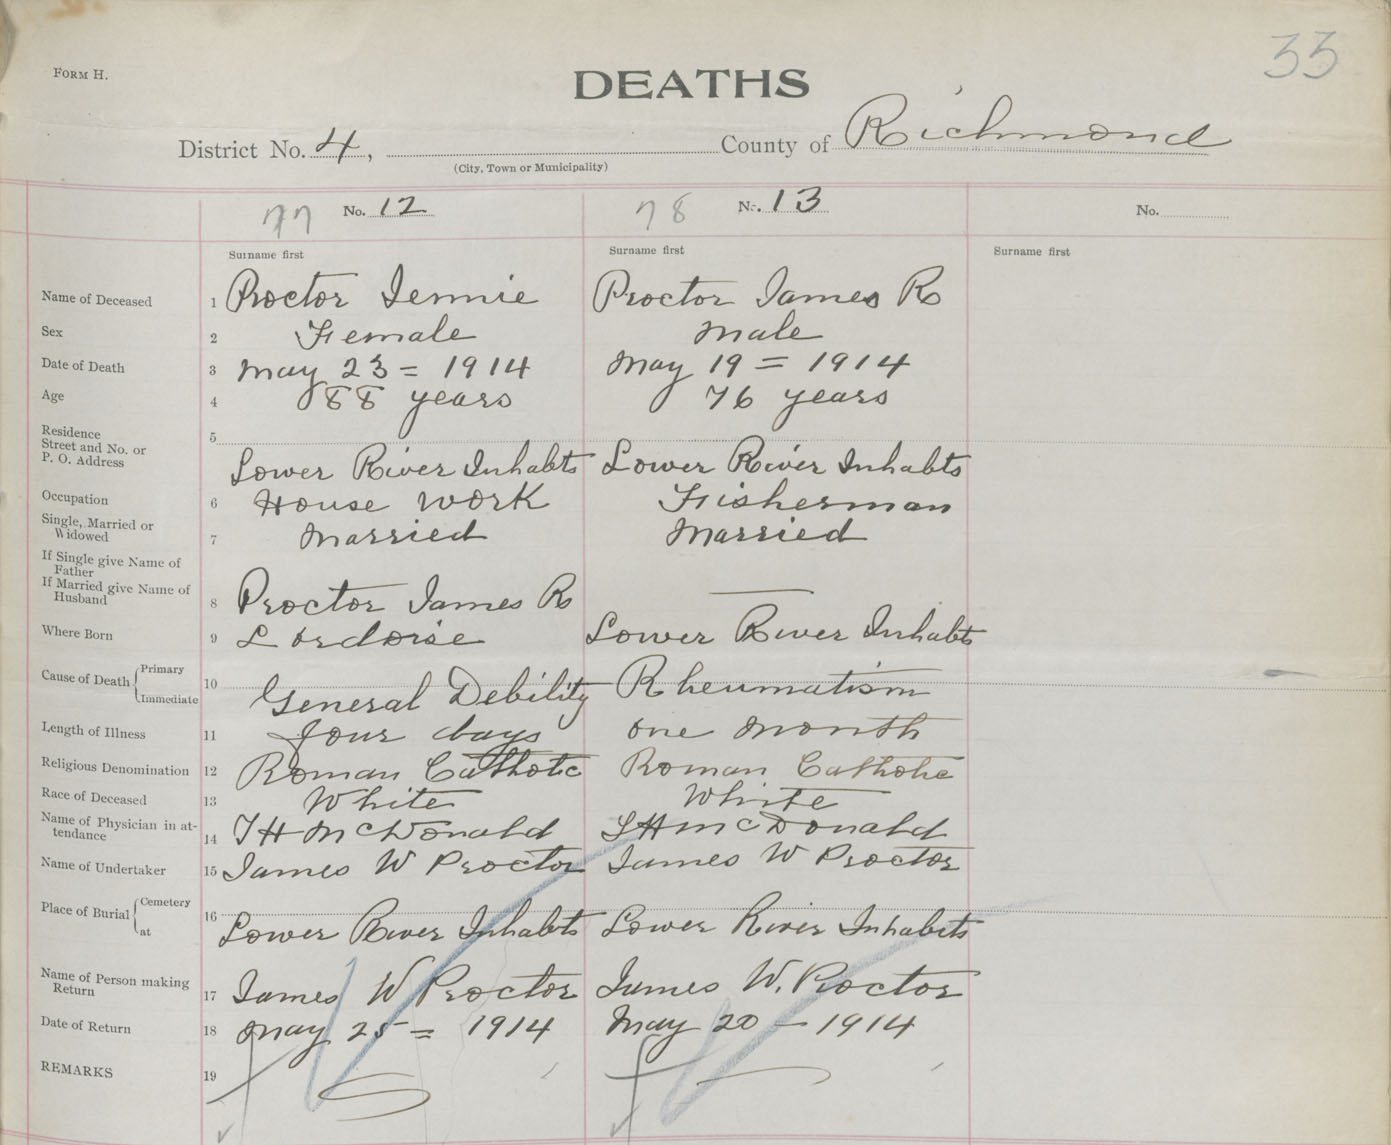 33
FORM H.
DEATHS
District No. 4, County of Richmond
(City, Town or Municipality)
77 No. 12
78 No. 13
No.
Surname first
Surname first
Surname first
Name of Deceased 1 Proctor Jennie Proctor James R
Sex 2 Female Male
Date of Death 3 May 23 = 1914 May 19 = 1914
Age 4 88 years 76 years
Residence
Street and No. or
P. O. Address
5 Lower River Inhabts Lower River Inhabts
Occupation 6 House work Fisherman
Single, Married or
Widowed 7 Married Married
If Single give Name of
Father
If Married give Name of
Husband 8 Proctor James R —
Where Born 9 L'ordoise Lower River Inhabts
Cause of Death { Primary
Immediate
10 General Debility Rheumatism
Length of Illness 11 four days one month
Religious Denomination 12 Roman Catholic Roman Catholic
Race of Deceased 13 White White
Name of Physician in at-
tendance 14 J H McDonald J H McDonald
Name of Undertaker 15 James W Proctor James W Proctor
Place of Burial { Cemetery
at
16 Lower River Inhabts Lower River Inhabits
Name of Person making
Return 17 James W Proctor James W. Proctor
Date of Return 18 May 25 = 1914 May 20 – 1914
REMARKS 19